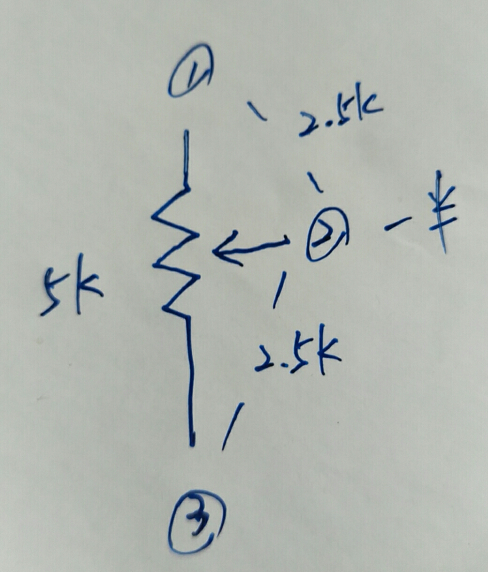 ①
2.5k
② - 半
5k
2.5k
③